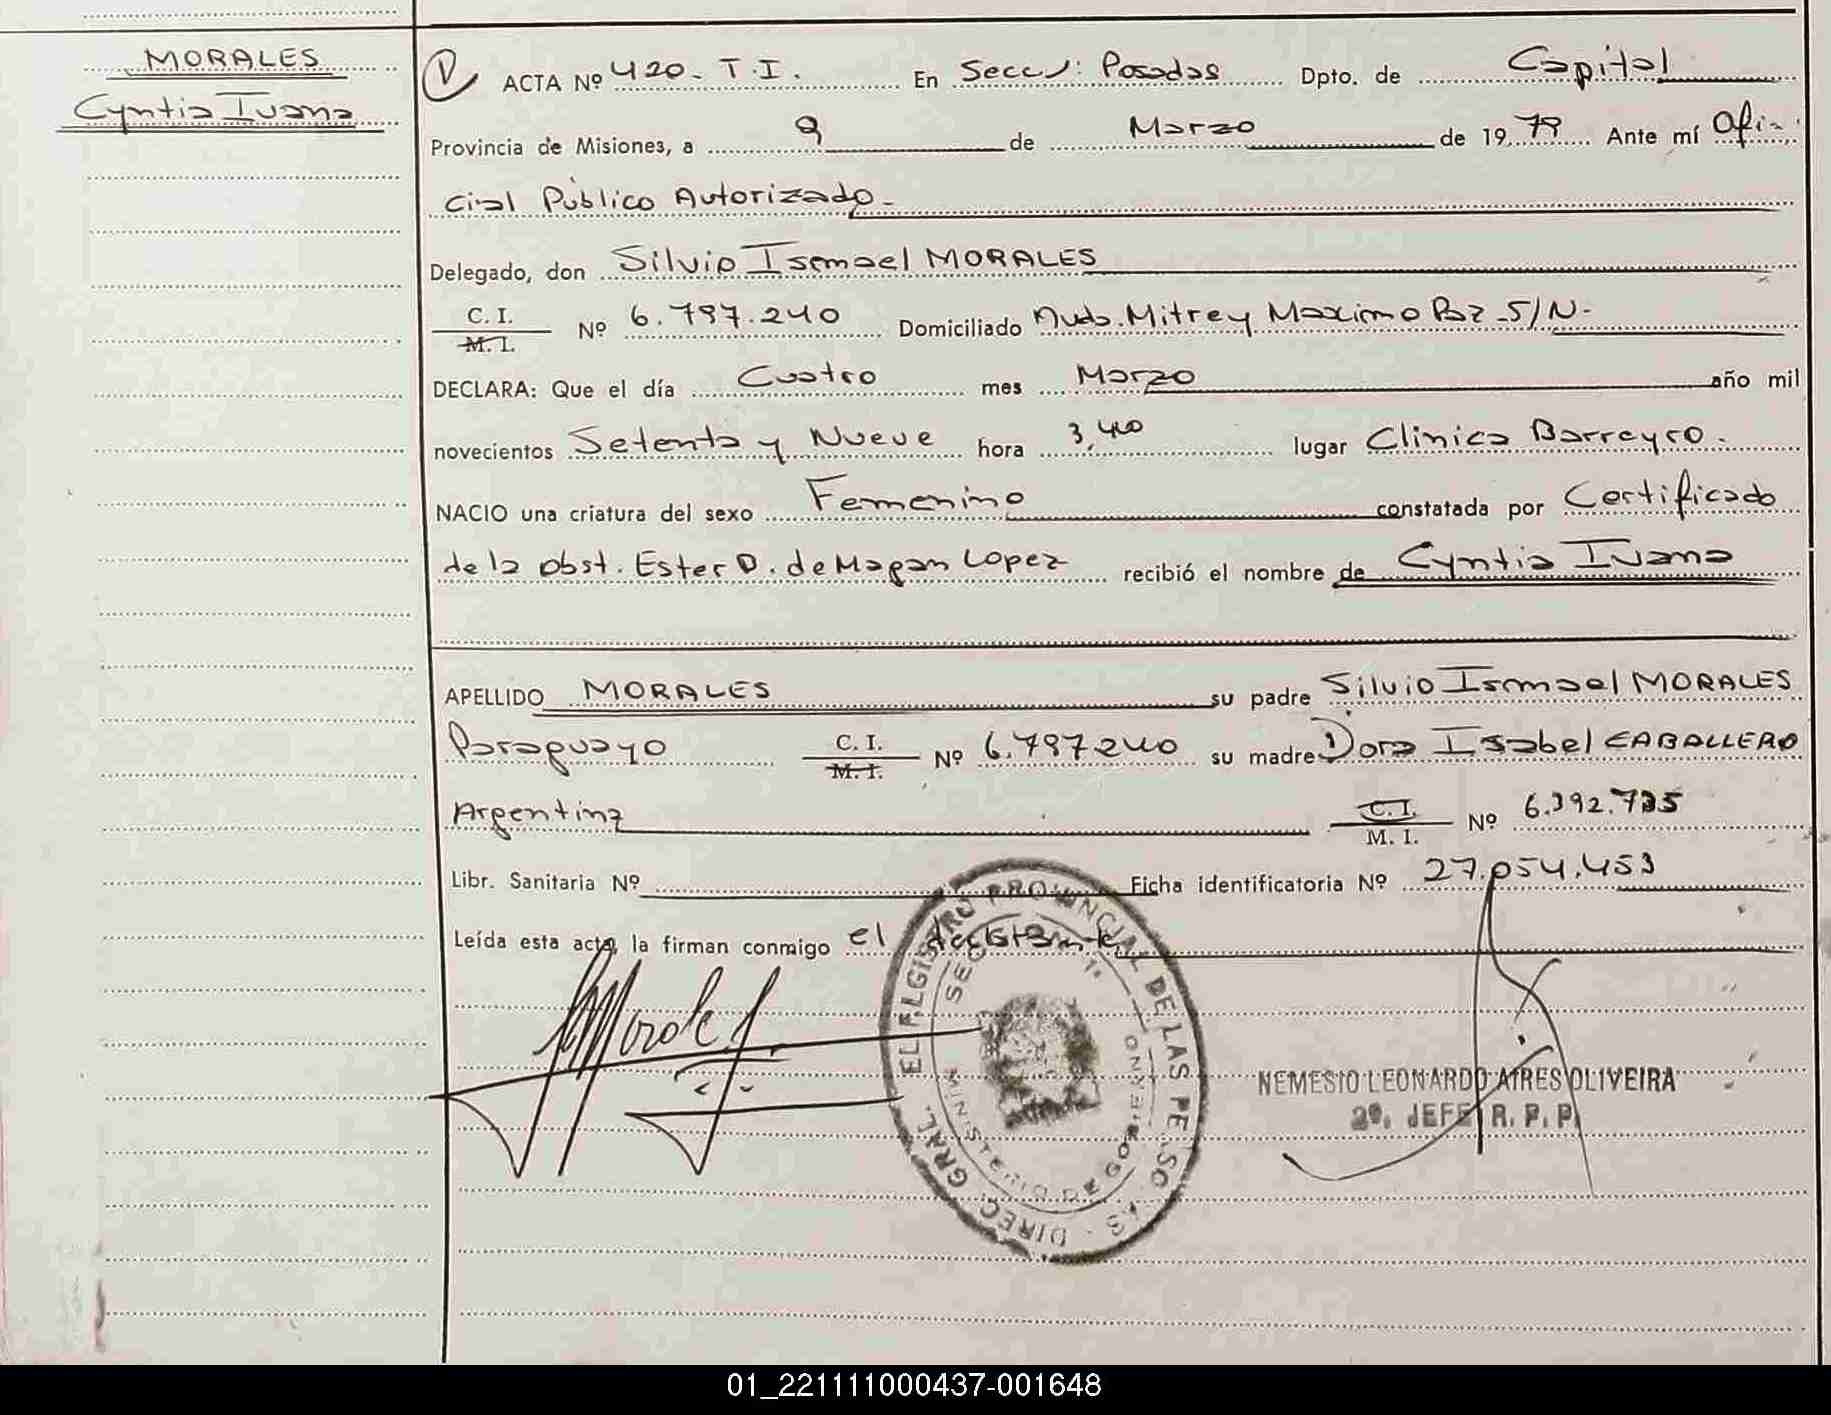 MORALES
Cyntia Ivana
V ACTA Nº 420. T.I. En Secc: Posadas Dpto. de Capital
Provincia de Misiones, a 9 de Marzo de 19 79 Ante mí Ofi-
cial Público Autorizado-
Delegado, don Silvio Ismael MORALES
C. I.
M. I.
Nº 6.797.240 Domiciliado Avda. Mitre y Maximo Paz - S/N-
DECLARA: Que el día Cuatro mes Marzo año mil
novecientos Setenta y Nueve hora 3,40 lugar Clinica Barreyro.
NACIO una criatura del sexo Femenino constatada por Certificado
de la obst. Ester D. de Magan Lopez recibió el nombre de Cyntia Ivana
APELLIDO MORALES su padre Silvio Ismael MORALES
Paraguayo C. I. Nº 6.797240 su madre Dora Isabel CABALLERO
M. I.
Argentina C. I. Nº 6.392.735
M. I.
Libr. Sanitaria Nº Ficha identificatoria Nº 27.054.453
Leída esta acta, la firman conmigo el declarante
DIREC. GRAL. DEL REGISTRO PROVINCIAL DE LAS PERSONAS
MINISTERIO DE GOBIERNO
NEMESIO LEONARDO AIRES OLIVEIRA
2º. JEFE R. P. P.
01_221111000437-001648